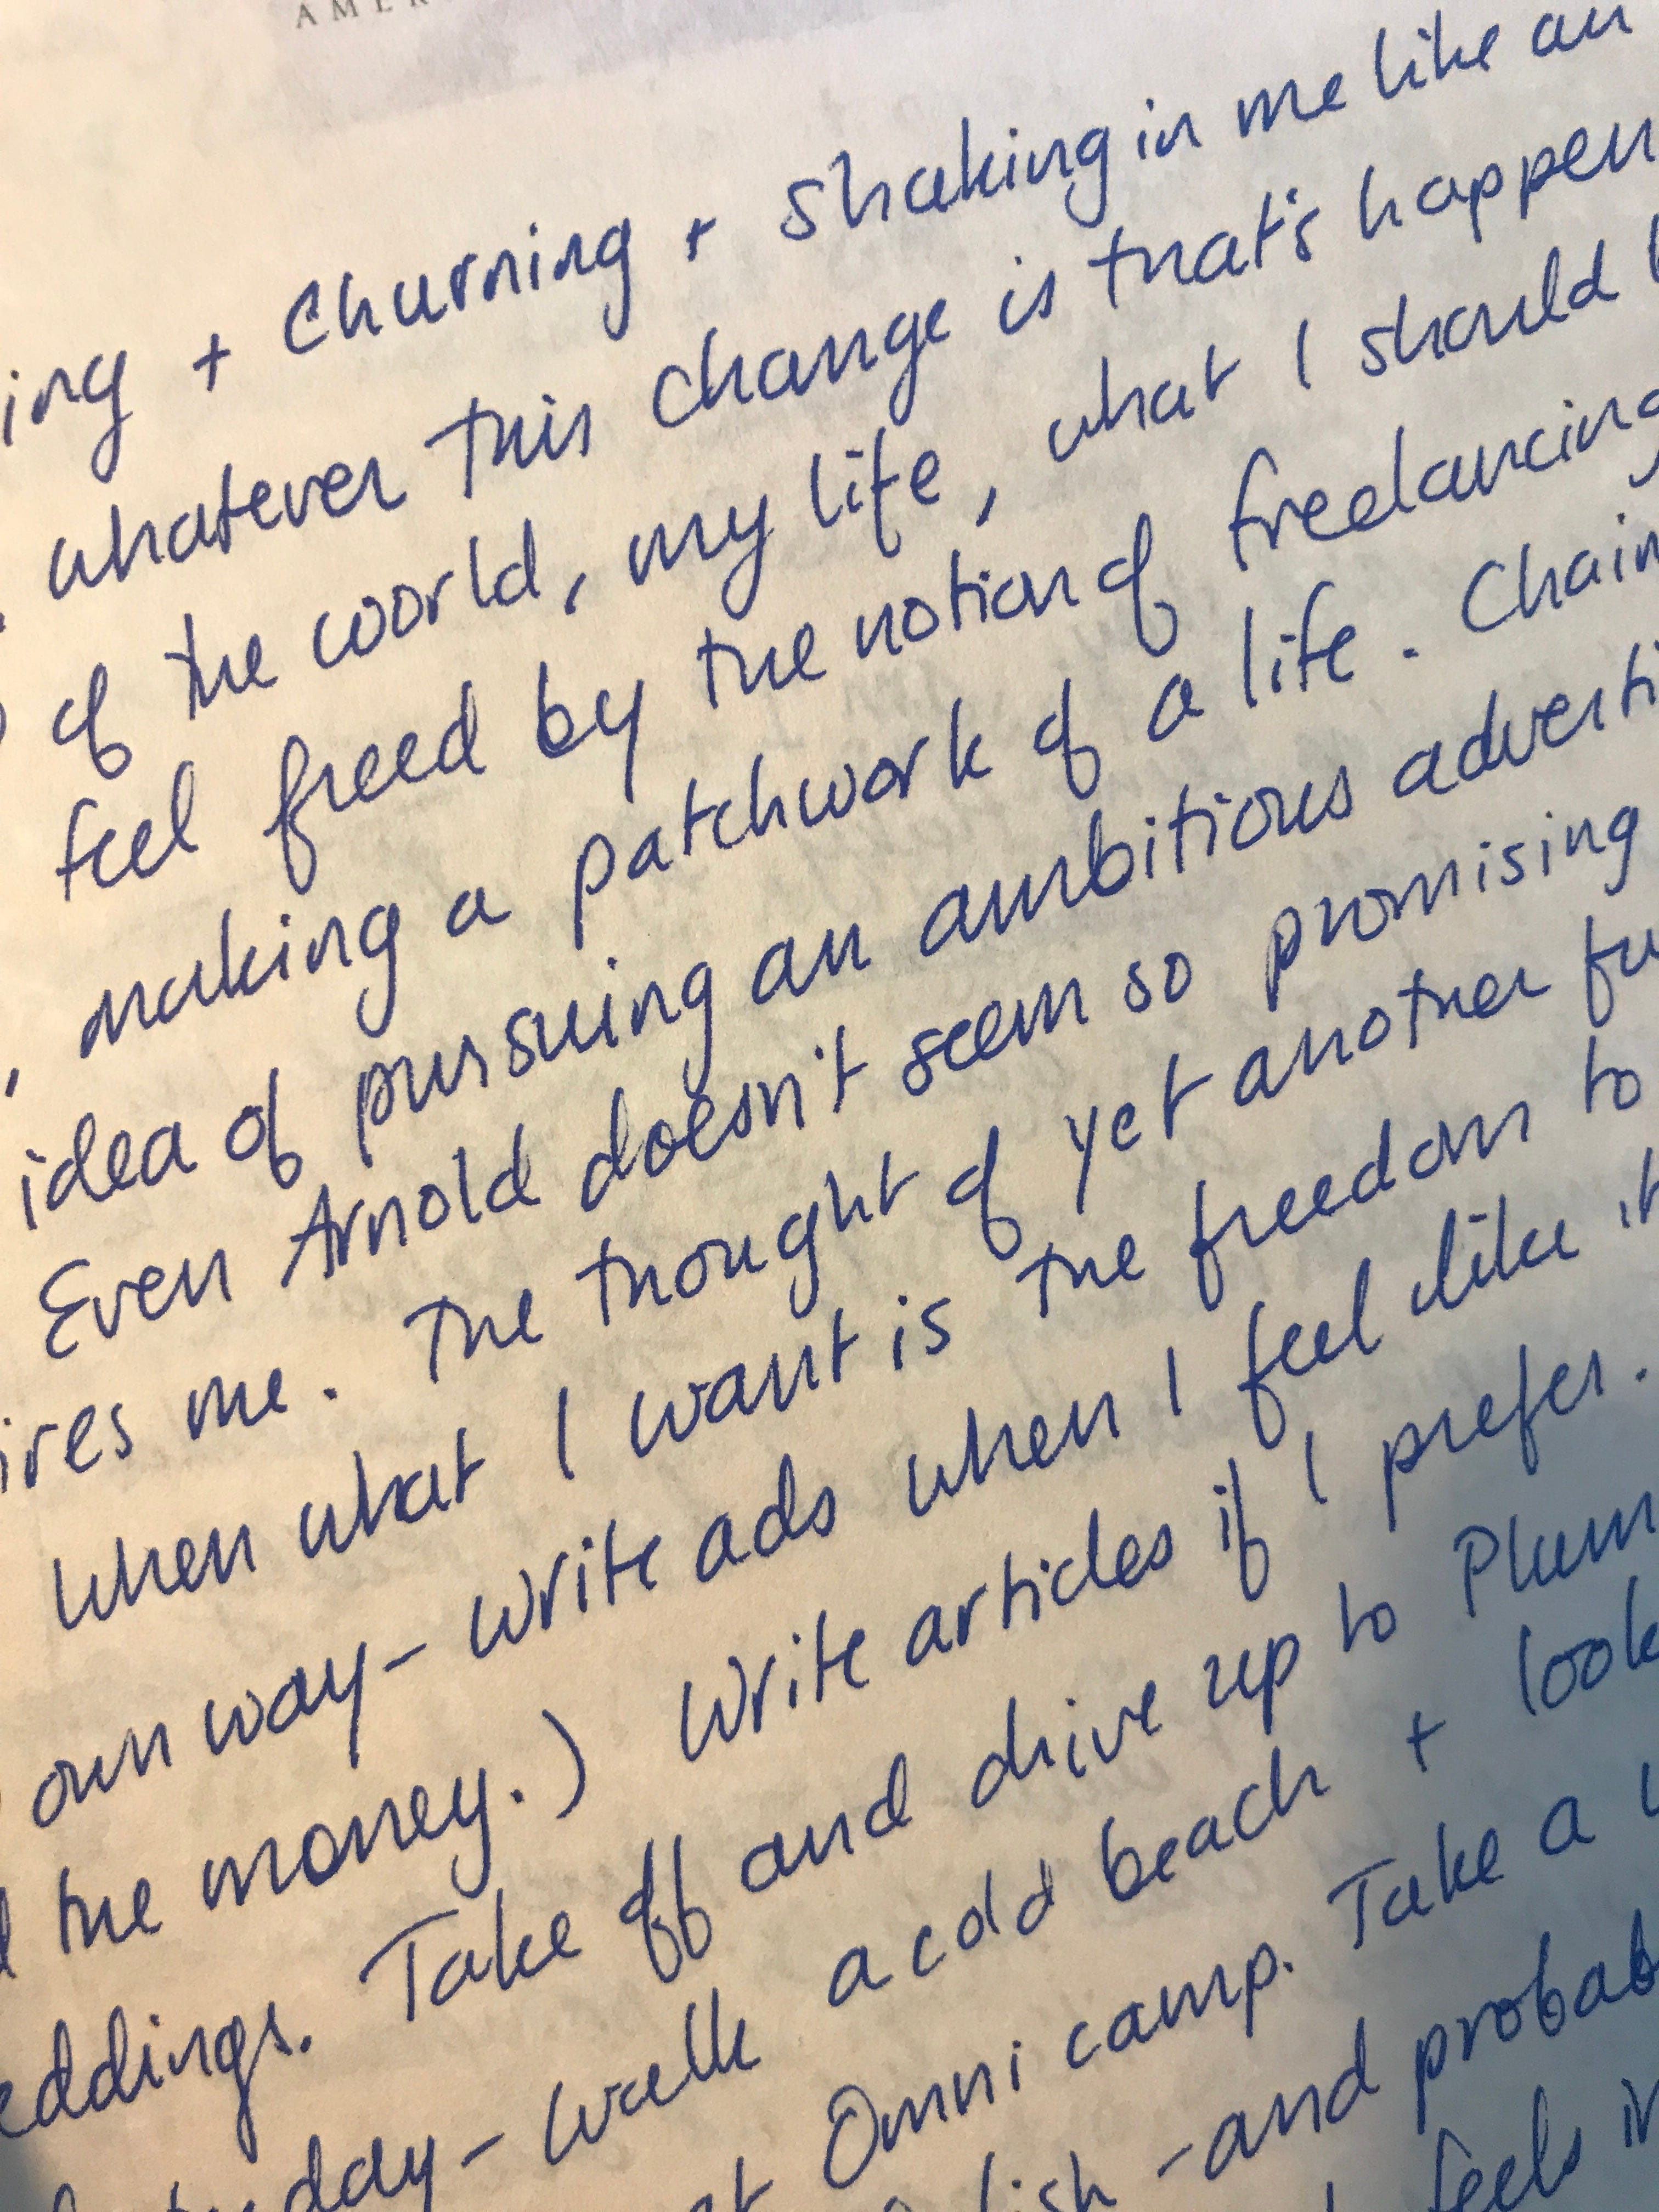 AMER
ing + churning + shaking in me like an
whatever this change is that's happen
of the world, my life, what I should
feel freed by the notion of freelancing
, making a patchwork of a life. Chain
idea of pursuing an ambitious adverti
Even Arnold doesn't seem so promising
ires me. The thought of yet another fu
when what I want is the freedom to
own way - write ads when I feel like it
the money.) Write articles if I prefer.
eddings. Take off and drive up to Plum
day - walk a cold beach + look
Omni camp. Take a
ish - and probab
feels in